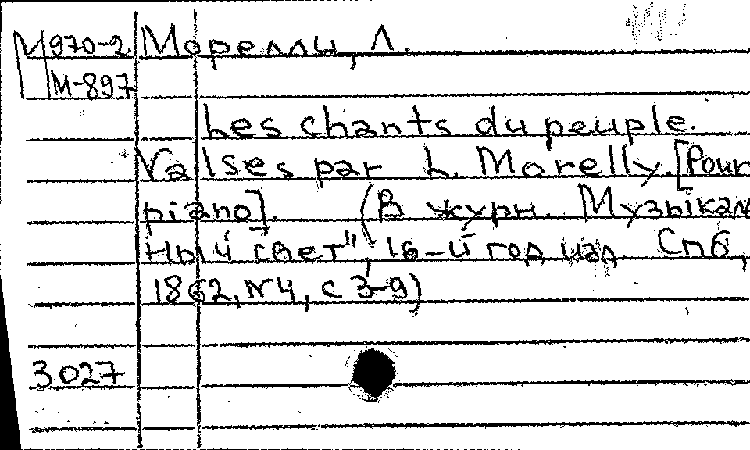 М970-2 Морелли, Л.
М-897
Les chants du peuple.
Valses par L. Morelly. [Pour
piano]. (В журн. Музыкаль
ный свет", 16-й год изд. Спб,
1862, №4, с 3-9)
3027